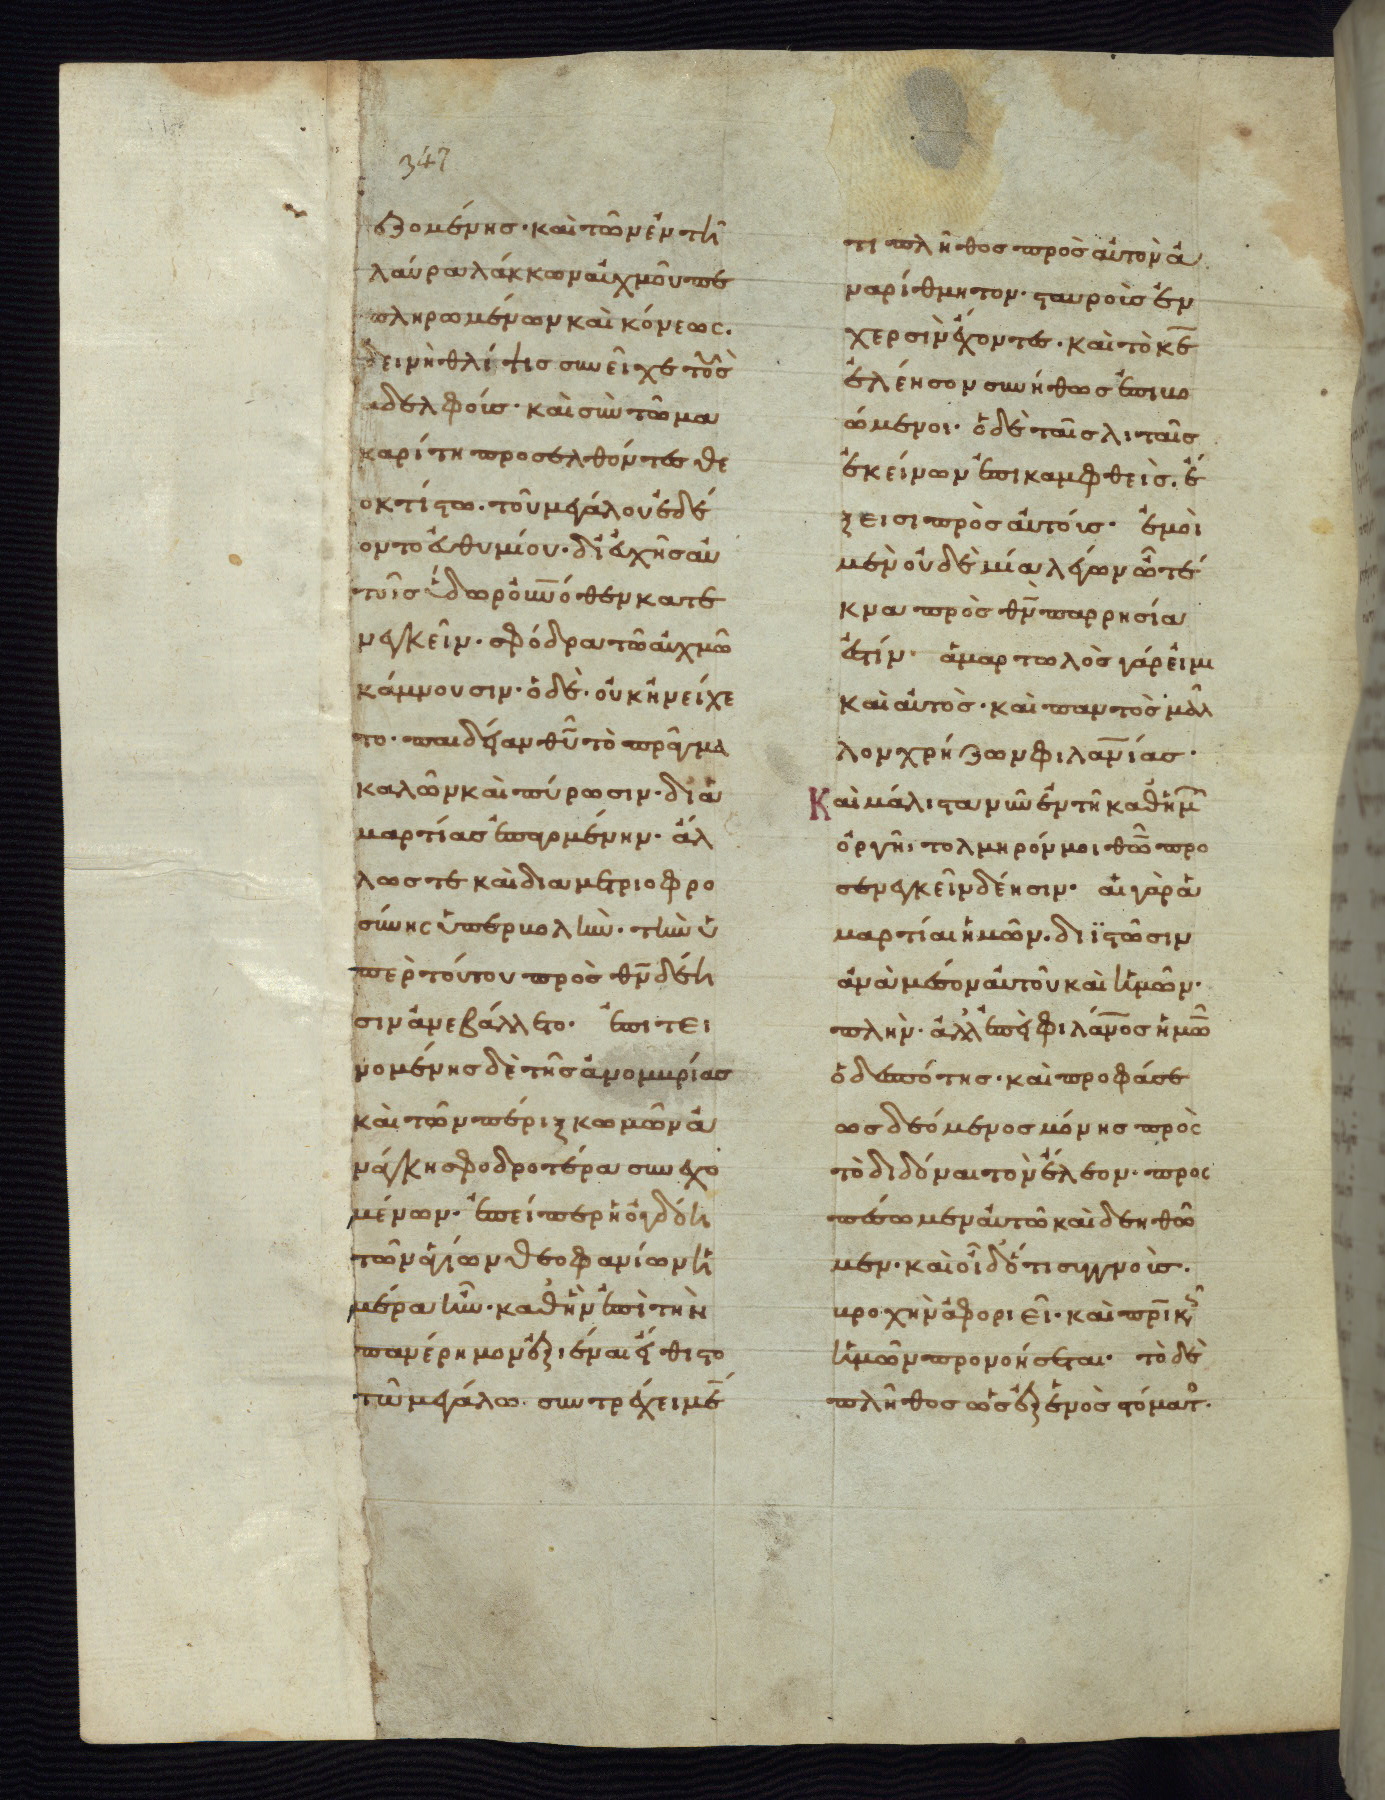 347
ζομένης· καὶ τῶν ἐν τῆ
λαύρα λάκκων αὐχμοῦ πε
πληρωμένων καὶ κόνεως.
δεινὴ θλίψις συνεῖχε τοὺς
ἀδελφούς· καὶ σὺν τῶ μα
καρίτη προσελθόντες θε
οκτίστω. τοῦ μεγάλου ἐδέ
οντο εὐθυμίου· δι' εὐχῆς αὐ
τοῖς ὕδωρ οὐνόθεν κατε
νεγκεῖν· σφόδρα τῶ αὐχμῶ
κάμνουσιν· ὁ δὲ· οὐκ ἠνείχε
το· παιδείαν θυ τὸ πρᾶγμα
καλῶν καὶ πύρωσιν· δι' ἁ
μαρτίας ἐπαγομένην· ἄλ
λως τε καὶ δια μετριοφρο
σύνης ὑπερβολὴν· τὴν ὑ
πὲρ τούτου πρὸς θν δέη
σιν ἀνεβάλλετο· ἐπιτει
νομένης δὲ τῆς ἀνομβρίας
καὶ τῶν πέριξ κωμῶν ἀ
νάγκη σφοδροτέρα συνεχο
μένων· ἐπείπερ ἡ ὀγδόη
τῶν ἁγίων θεοφανίων ἡ
μέρα ἦν· καθ' ἣν ἐπὶ τὴν
πανέρημον ἐξιέναι εἴθιστο
τῶ μεγάλω· συντρέχει μέ
τι πλῆθος πρὸς αὐτὸν ἀ
ναρίθμητον· σταυροὺς ἐν
χερσὶν ἔχοντες· καὶ τὸ κε
ἐλέησον συνήθως ἐπιβο
ώμενοι· ὁ δὲ ταῖς λιταῖς
ἐκείνων ἐπικαμφθεὶς. ἔ
ξεισι πρὸς αὐτούς· ἐμοὶ
μὲν οὐδεμία λέγων ὦ τέ
κνα πρὸς θν παρρησία
ἐστίν· ἁμαρτωλὸς γάρ εἰμι
καὶ αὐτὸς· καὶ παντὸς μᾶλ
λον χρήζων φιλανίας·
Καὶ μάλιστα νῦν ἐν τῆ καθ' ἡμ
ὀργῆ, τολμηρόν μοι θῶ προ
σενεγκεῖν δέησιν· αἱ γὰρ ἁ
μαρτίαι ἡμῶν. διϊστῶσιν
ἀνὰ μέσον αὐτοῦ καὶ ἡμῶν·
πλὴν· ἀλλ' ἐπεὶ φιλάνος ἡμῶ
ὁ δεσπότης· καὶ προφάσε
ως δεόμενος μόνης πρὸς
τὸ διδόναι τὸν ἔλεον· προς
πέσωμεν αὐτῶ καὶ δεηθῶ
μεν· καὶ οἶδ' ὅτι συγγνοὺς.
βροχὴν ἀφοριεῖ· καὶ πρικῶς
ἡμῶν προνοήσεται· τὸ δὲ
πλῆθος ὡς ἐξ ἑνὸς στόματ·